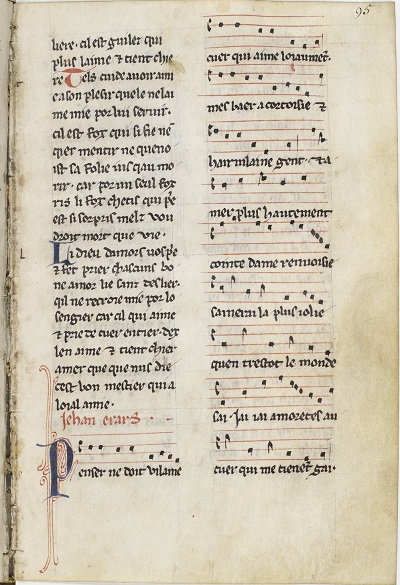 95
liere · cil est guilez qui
plus laime & tient chie
re Tels cuide auoir ami
e a son plesir quele ne lai
me mie por lui seruir ·
cil est fox qui si sie ne
quer mentir ne queno
ist sa folie iusqau mo
rir · car por un seul fox
ris li fox chetis qui
est si sorpris melz vou
droit mort que vie ·
Li dieu damors uos pe
& fet prier chascuns bo
ne amor lie sanz deslier ·
qil ne recroie mie por lo
sengier car cil qui aime
& prie de cuer entier · doit
len amer & tient chier
amer que que nus die
cest bon mestier qui a
loial amie ·
Jehan erars ·
Penser ne doit vilanie
cuer qui aime loiaument ·
mes baer a cortoisie &
hair uilaine gent · & a
mer plus hautement
cointe dame renuoisie
sauerai la plus iolie
quen trestot le monde
sai · Jai iai amoretes au
cuer qui me tienent gai ·